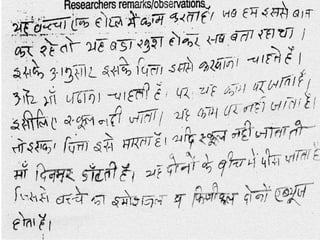 Researchers remarks/observations
यह बच्चा एक होटल में काम करता है। जब हम इससे बात
कर रहे तो यह बडा खुश होकर सब बता रहा था।
इसके अनुसार इसके पिता इससे करवाना चाहते है।
और माँ पढ़ाना चाहती है। पर यह काम पर जाता है।
इसीलिए स्कूल नही जाता। यह काम पर नही जाता है।
तो इसका पिता इसे मारता है। यदि स्कूल नही जाता तो
माँ दिनभर डाँटती है। यह दोनों के बीच में पीस जाता है
जिससे बच्चे का इमोशनल व फिजीकल दोनों एब्यूज
होता है।